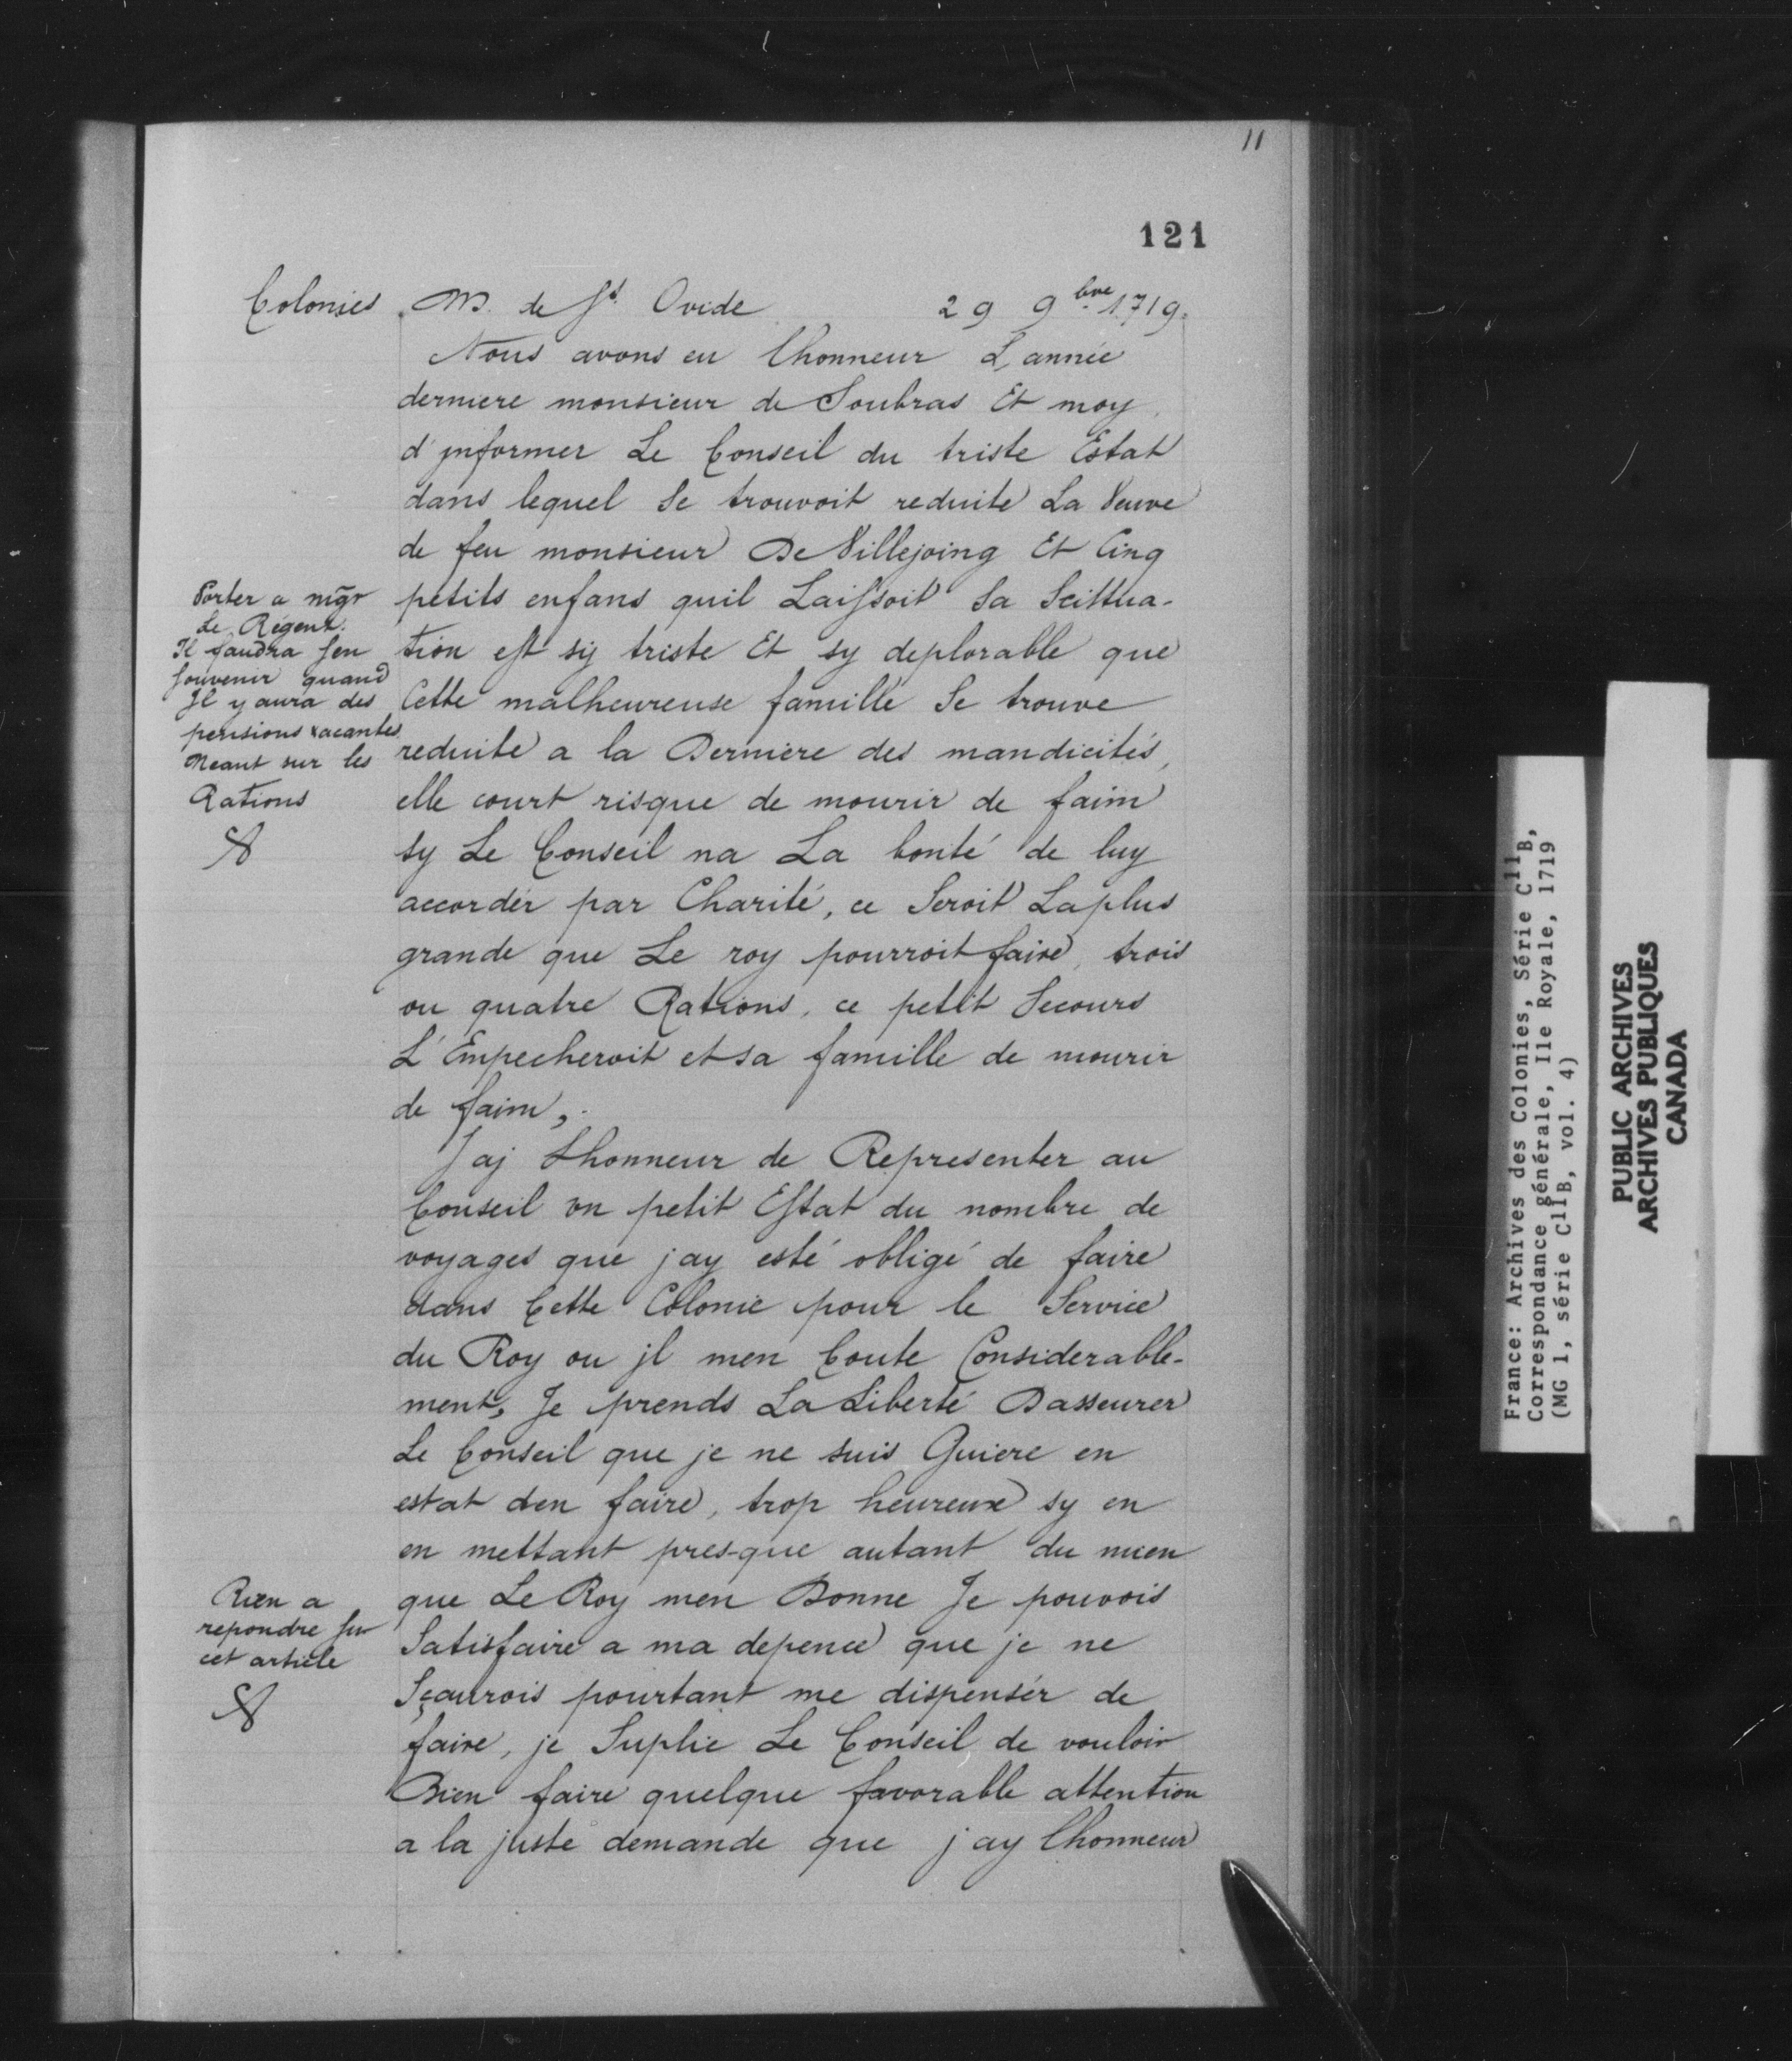 11
121
Colonies M. de St. Ovide 29 9bre 1719.
Nous avons eu lhonneur L année
derniere monsieur de Soubras Et moy
d'jnformer Le Conseil du triste Estat
dans lequel Se trouvoit reduite La Veuve
de feu monsieur De Villejoing Et Cinq
petits enfans quil Laissoit Sa Scittua-
tion est sy triste Et sy deplorable que
Cette malheureuse famille Se trouve
reduite a la Derniere des mandicités,
elle court risque de mourir de faim
sy Le Conseil na La bonté de luy
accorder par Charité, ce Seroit La plus
grande que Le roy pourroit faire, trois
ou quatre Rations, ce petit Secours
L'Empecheroit et sa famille de mourir
de faim,
Porter a mgr
Le Régent.
Il faudra sen
souvenir quand
Il y aura des
pensions vacantes
Neant sur les
Rations
Jaj Lhonneur de Representer au
Conseil un petit Estat du nombre de
voyages que jay esté obligé de faire
dans Cette Colonie pour le Service
du Roy ou jl men Coute Considerable-
ment, Je prends La Liberté Dasseurer
Le Conseil que je ne suis Guiere en
estat den faire, trop heureux sy en
en mettant pres-que autant du mien
que Le Roy men Donne Je pouvois
Satisfaire a ma depence que je ne
Sçaurois pourtant me dispenser de
faire, je Suplie Le Conseil de vouloir
Bien faire quelque favorable attention
a la juste demande que jay lhonneur
Rien a
repondre sur
cet article
France: Archives des Colonies, Série C11B,
Correspondance générale, Ile Royale, 1719
(MG 1, série C11B, vol. 4)
PUBLIC ARCHIVES
ARCHIVES PUBLIQUES
CANADA